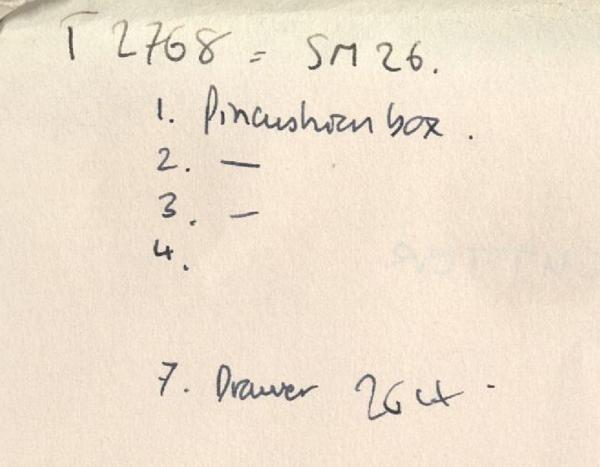 T 2768 = SM 26.
1. Pincushion box.
2. —
3. —
4.
7. Drawer 26